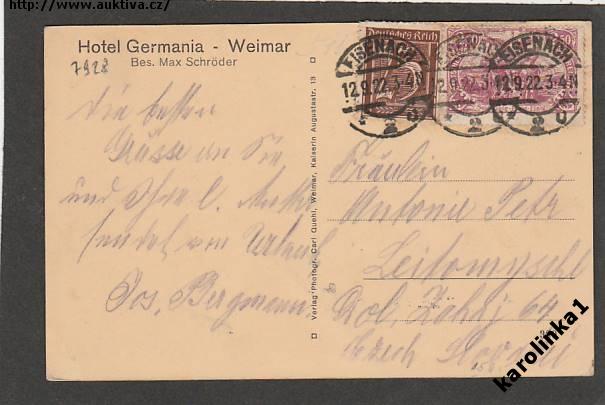 http://www.auktiva.cz/
Hotel Germania - Weimar
Bes. Max Schröder
7928
Deutsches Reich
EISENACH
12.9.22.3-4N
* 2 o
EISENACH
12.9.22.3
* 2
EISENACH
12.9.22.3-4N
* 2 o
Die besten
Grüsse an Sie
und Ihre l. Mutter
sendet vom Urlaub
Jos. Bergmann
Verlag Photogr. Carl Quehl, Weimar, Kaiserin Augustastr. 13
Fräulein
Antonie Petr
Leitomyschl
64
karolinka1